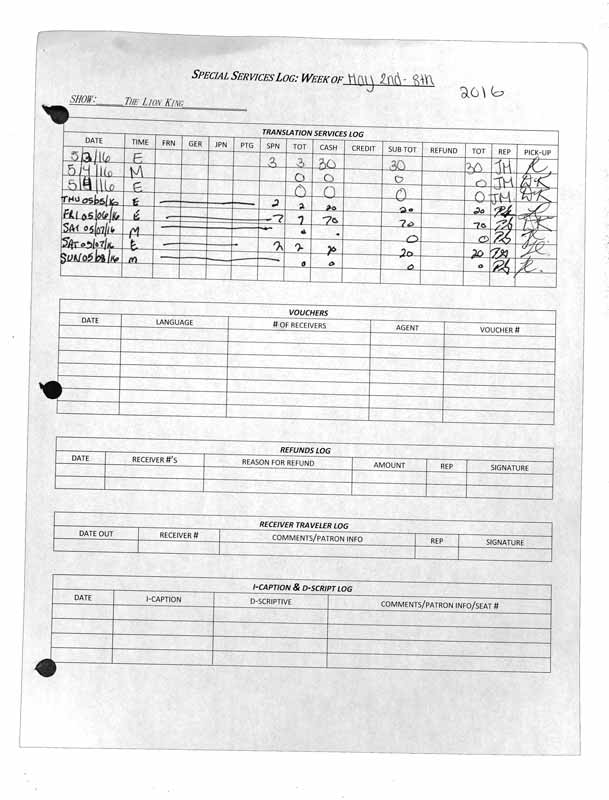 SPECIAL SERVICES LOG: WEEK OF May 2nd - 8th
2016
SHOW: THE LION KING
TRANSLATION SERVICES LOG
DATE TIME FRN GER JPN PTG SPN TOT CASH CREDIT SUB TOT REFUND TOT REP PICK-UP
5/3/16 E 3 3 30 30 30 JM
5/4/16 M 0 0 0 0 JM DK
5/4/16 E 0 0 0 0 JM DK
THU 05/05/16 E 2 2 20 20 20
FRI 05/06/16 E 7 7 70 70 70 DK
SAT 05/07/16 M 0 0
SAT 05/07/16 E 2 2 20 20 20
SUN 05/08/16 M 0 0 0 0
VOUCHERS
DATE LANGUAGE # OF RECEIVERS AGENT VOUCHER #
REFUNDS LOG
DATE RECEIVER #'S REASON FOR REFUND AMOUNT REP SIGNATURE
RECEIVER TRAVELER LOG
DATE OUT RECEIVER # COMMENTS/PATRON INFO REP SIGNATURE
I-CAPTION & D-SCRIPT LOG
DATE I-CAPTION D-SCRIPTIVE COMMENTS/PATRON INFO/SEAT #